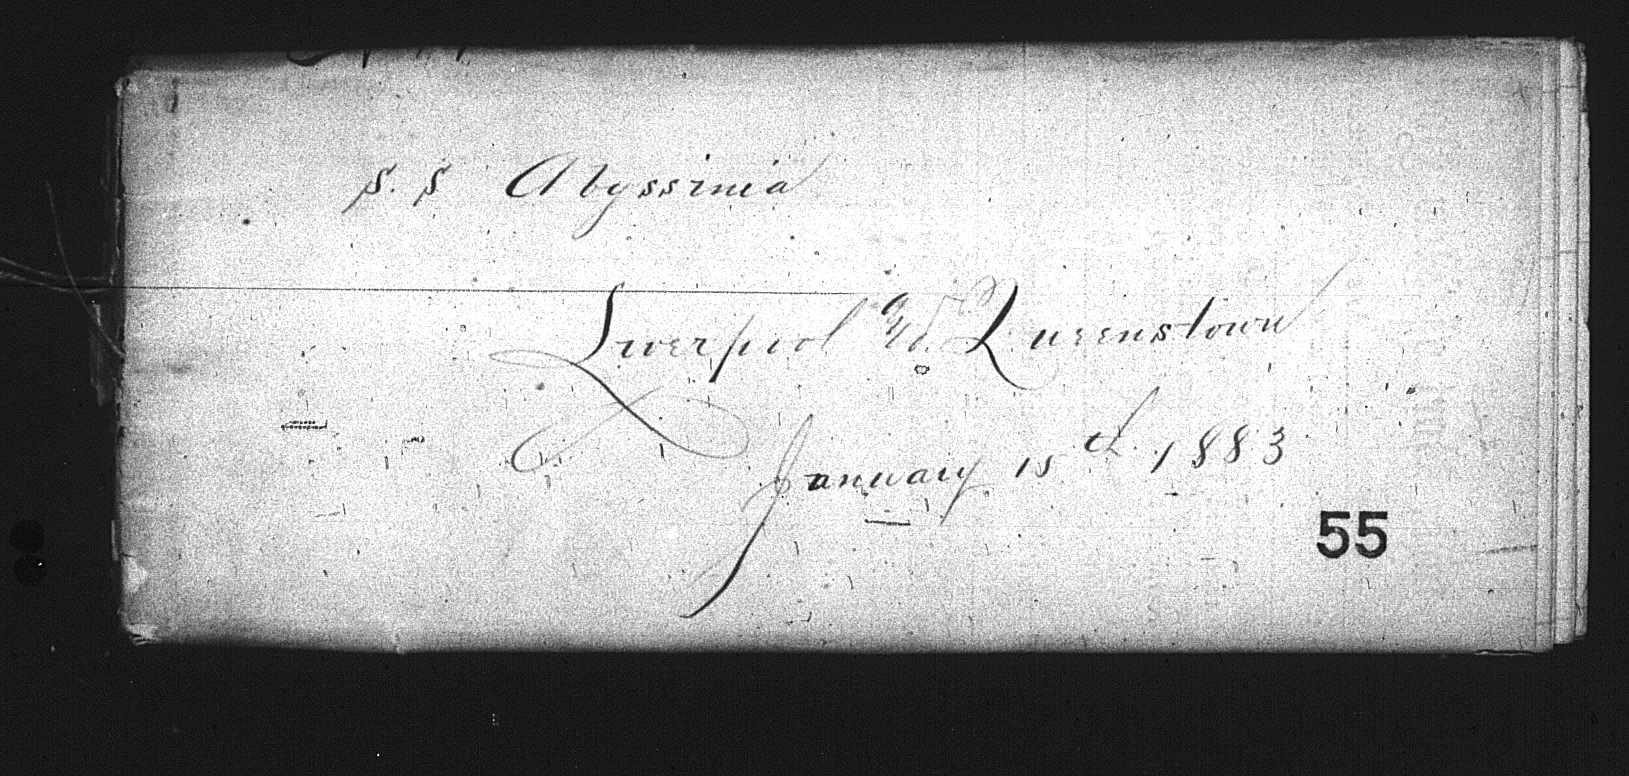 S. S Abyssinia
Liverpool & Queenstown
January 15th 1883
55